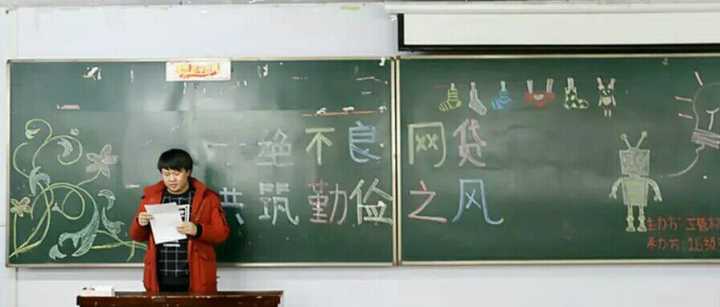 绝不良网贷
共筑勤俭之风
主办方:工管
承办方:1630